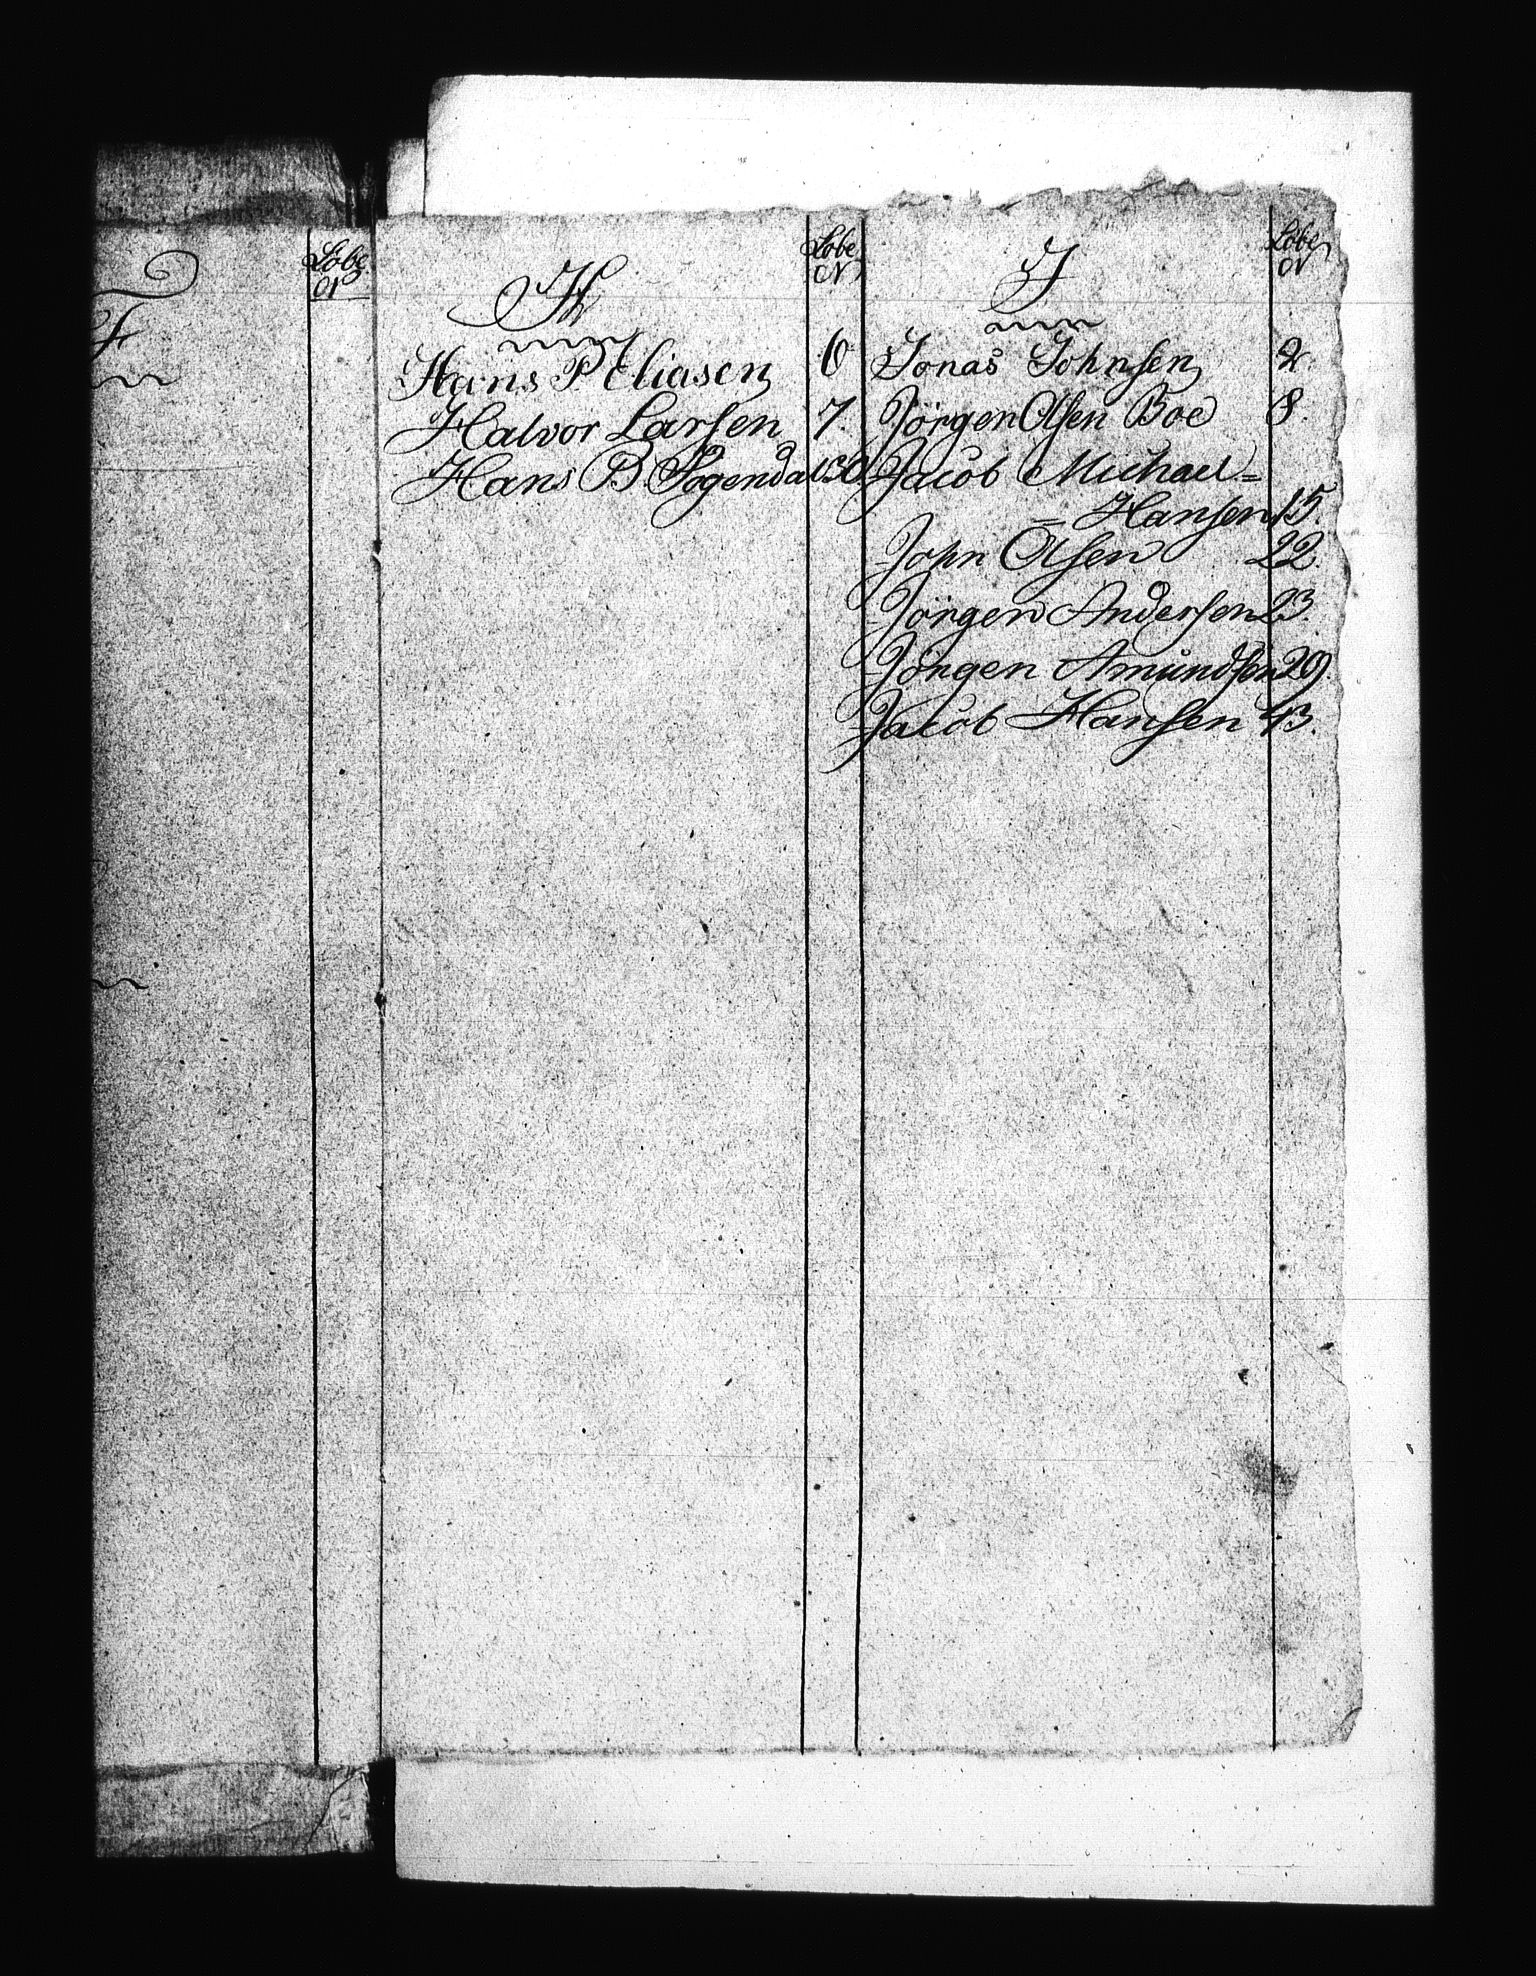 F
Løbe
N
H
Løbe
N
Hans P Eliasen 6
Halvor Larsen 7.
Hans B. Sogendal 30
I
Løbe
N
Jonas Johnsen 2
Jörgen Olsen Boe 8.
Jacob Michael=
= Hansen 15.
John Olsen 22.
Jörgen Andersen 23.
Jörgen Amundsen 29.
Jacob Hansen 43.